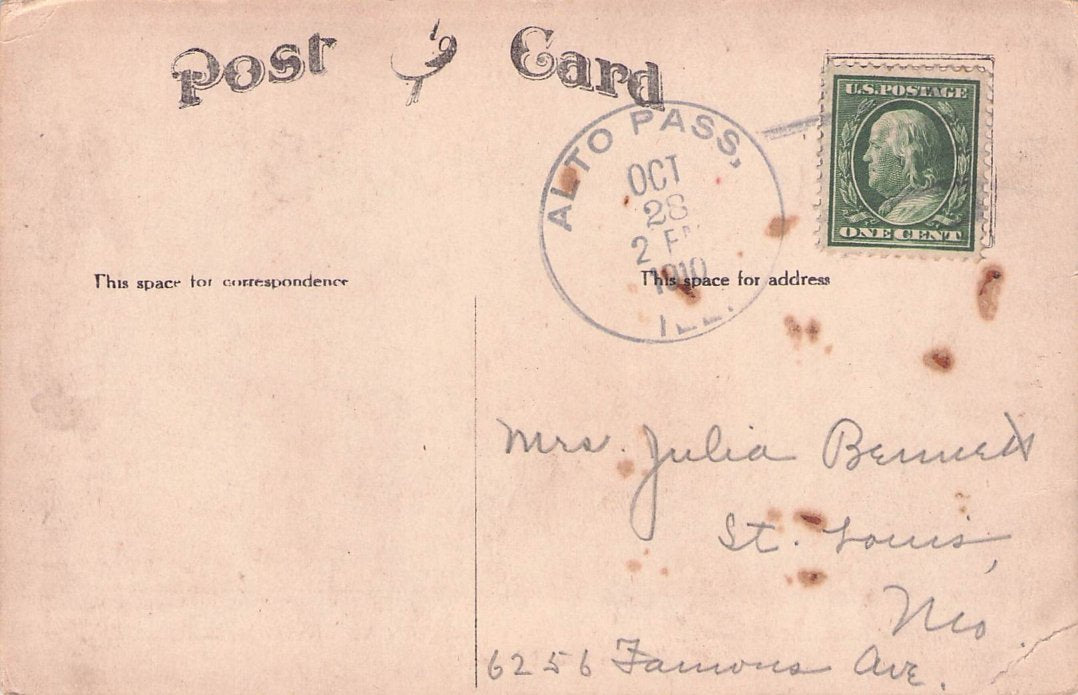 Post Card
U.S. POSTAGE
ONE CENT
ALTO PASS,
OCT
28
2 PM
1910
ILL.
This space for correspondence
This space for address
Mrs. Julia Bennett
St. Louis,
Mo.
6256 Famous Ave.